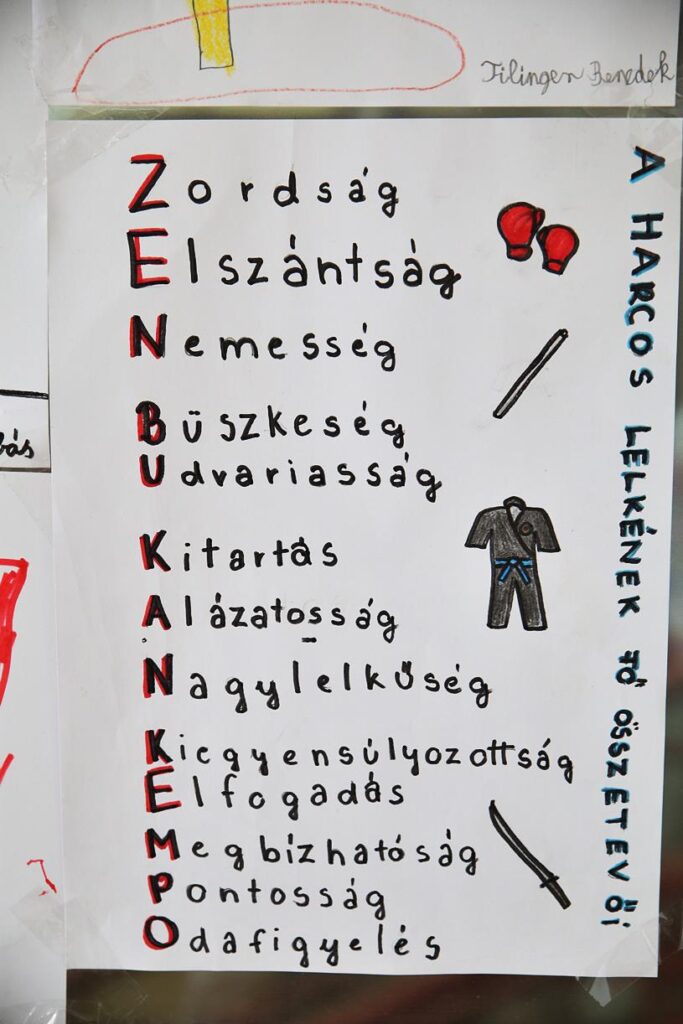 Tilinger Benedek
Zordság
Elszántság
Nemesség
Büszkeség
Udvariasság
Kitartás
Alázatosság
Nagylelkűség
Kiegyensúlyozottság
Elfogadás
Megbízhatóság
Pontosság
Odafigyelés
A HARCOS LELKÉNEK FŐ ÖSSZETEVŐI
bás